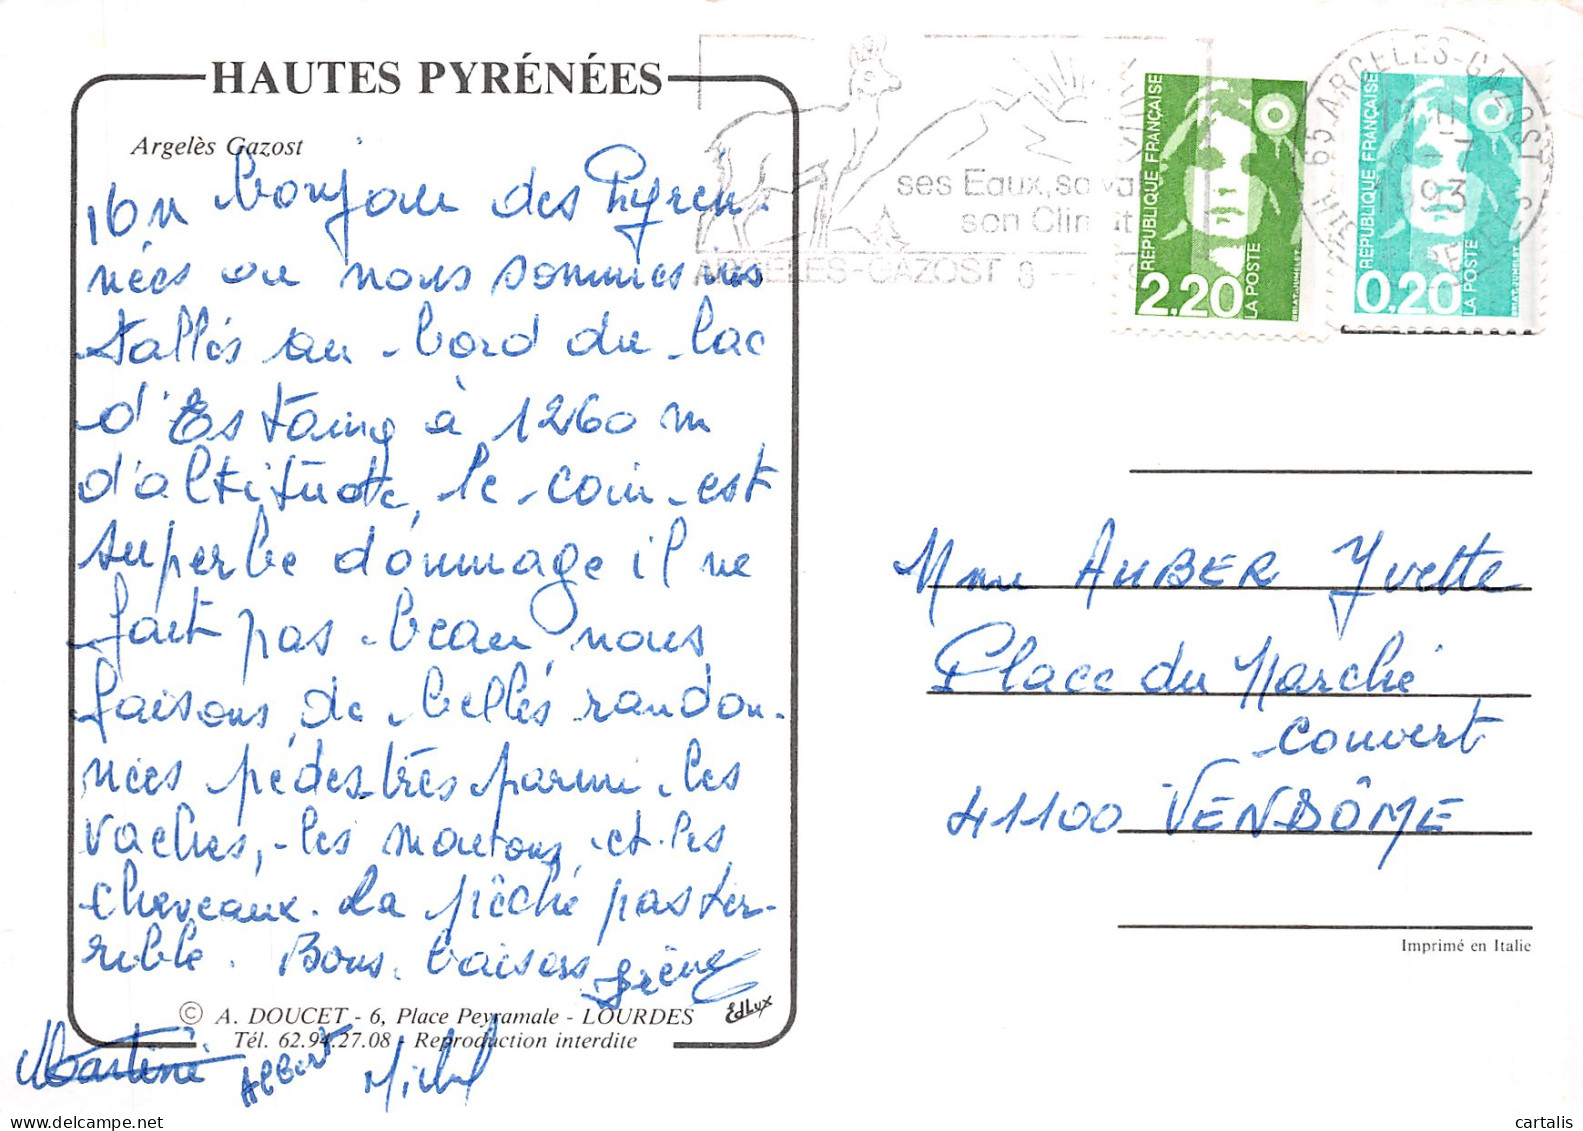 HAUTES PYRÉNÉES
Argelès Gazost
bonjour des Pyrén-
nées ou nous sommes ins
tallés au bord du lac
d'Estaing à 1260 m
d'altitude, le coin est
superbe dommage il ne
fait pas beau, nous
faisons de belles randon-
nées pédestres parmi les
vaches, les moutons et les
chevaux. La pêche pas ter-
rible. Bons baisers Irène
Martine Albert Michel
© A. DOUCET - 6, Place Peyramale - LOURDES
Tél. 62.94.27.08 - Reproduction interdite
EdLux
ses Eaux, sa
son Climat
ARGELES-GAZOST
RÉPUBLIQUE FRANÇAISE
2,20
LA POSTE
65 ARGELES-GAZOST
93
RÉPUBLIQUE FRANÇAISE
0,20
LA POSTE
Mme AUBER Yvette
Place du Marché
couvert
41100 VENDÔME
Imprimé en Italie
cartalis